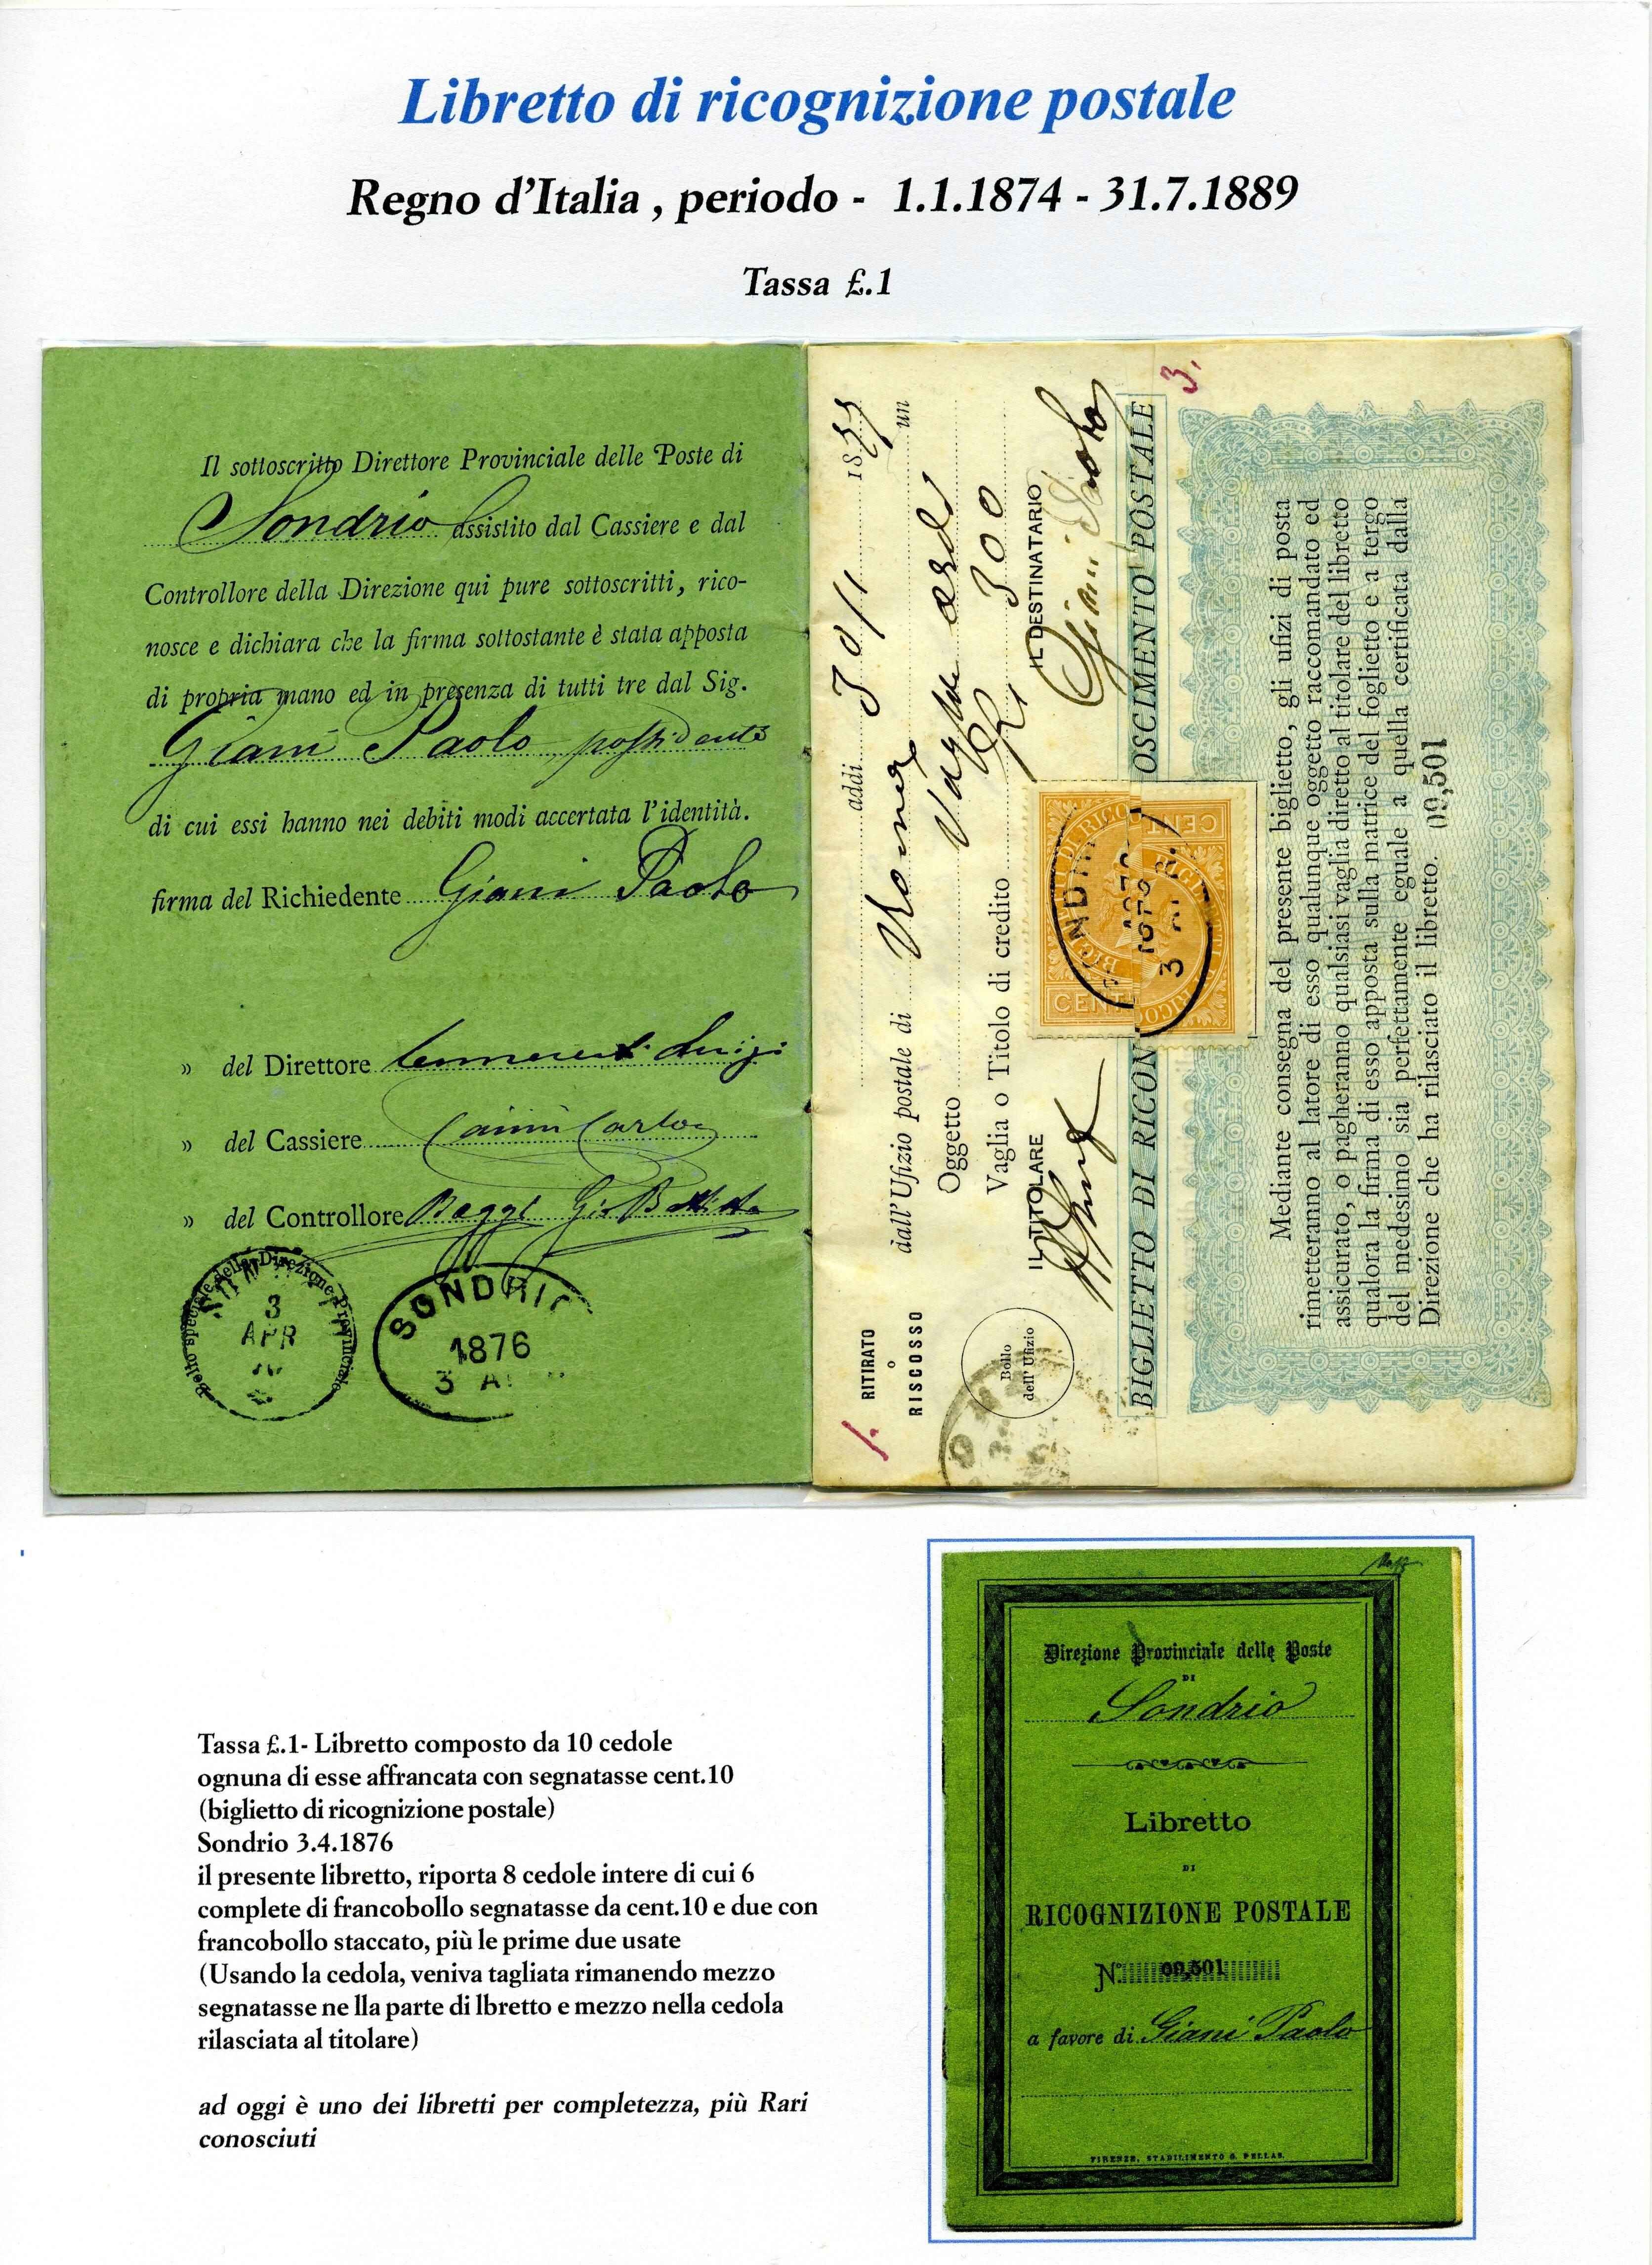 Libretto di ricognizione postale
Regno d'Italia , periodo - 1.1.1874 - 31.7.1889
Tassa £.1
Il sottoscritto Direttore Provinciale delle Poste di
Sondrio assistito dal Cassiere e dal
Controllore della Direzione qui pure sottoscritti, rico-
nosce e dichiara che la firma sottostante è stata apposta
di propria mano ed in presenza di tutti tre dal Sig.
Giani Paolo possidente
di cui essi hanno nei debiti modi accertata l'identità.
firma del Richiedente Giani Paolo
» del Direttore Luigi
» del Cassiere Carlo
» del Controllore
Bollo speciale della Direzione Provinciale
3
APR
SONDRIO
1876
3
1.
RITIRATO
o
RISCOSSO
addì 30/1 1877
dall'Ufizio postale di un
Oggetto Vaglia
Vaglia o Titolo di credito 300
IL TITOLARE
IL DESTINATARIO
Giani Paolo
Bollo
dell' Ufizio
BIGLIETTO DI RICON OSCIMENTO POSTALE
CENT
CENT
3.
Mediante consegna del presente biglietto, gli ufizi di posta
rimetteranno al latore di esso qualunque oggetto raccomandato ed
assicurato, o pagheranno qualsiasi vaglia diretto al titolare del libretto
qualora la firma di esso apposta sulla matrice del foglietto e a tergo
del medesimo sia perfettamente eguale a quella certificata dalla
Direzione che ha rilasciato il libretto. 09,501
Tassa £.1- Libretto composto da 10 cedole
ognuna di esse affrancata con segnatasse cent.10
(biglietto di ricognizione postale)
Sondrio 3.4.1876
il presente libretto, riporta 8 cedole intere di cui 6
complete di francobollo segnatasse da cent.10 e due con
francobollo staccato, più le prime due usate
(Usando la cedola, veniva tagliata rimanendo mezzo
segnatasse ne lla parte di lbretto e mezzo nella cedola
rilasciata al titolare)
ad oggi è uno dei libretti per completezza, più Rari
conosciuti
Direzione Provinciale delle Poste
DI
Sondrio
Libretto
DI
RICOGNIZIONE POSTALE
N.° 09,501
a favore di Giani Paolo
FIRENZE, STABILIMENTO G. PELLAS.